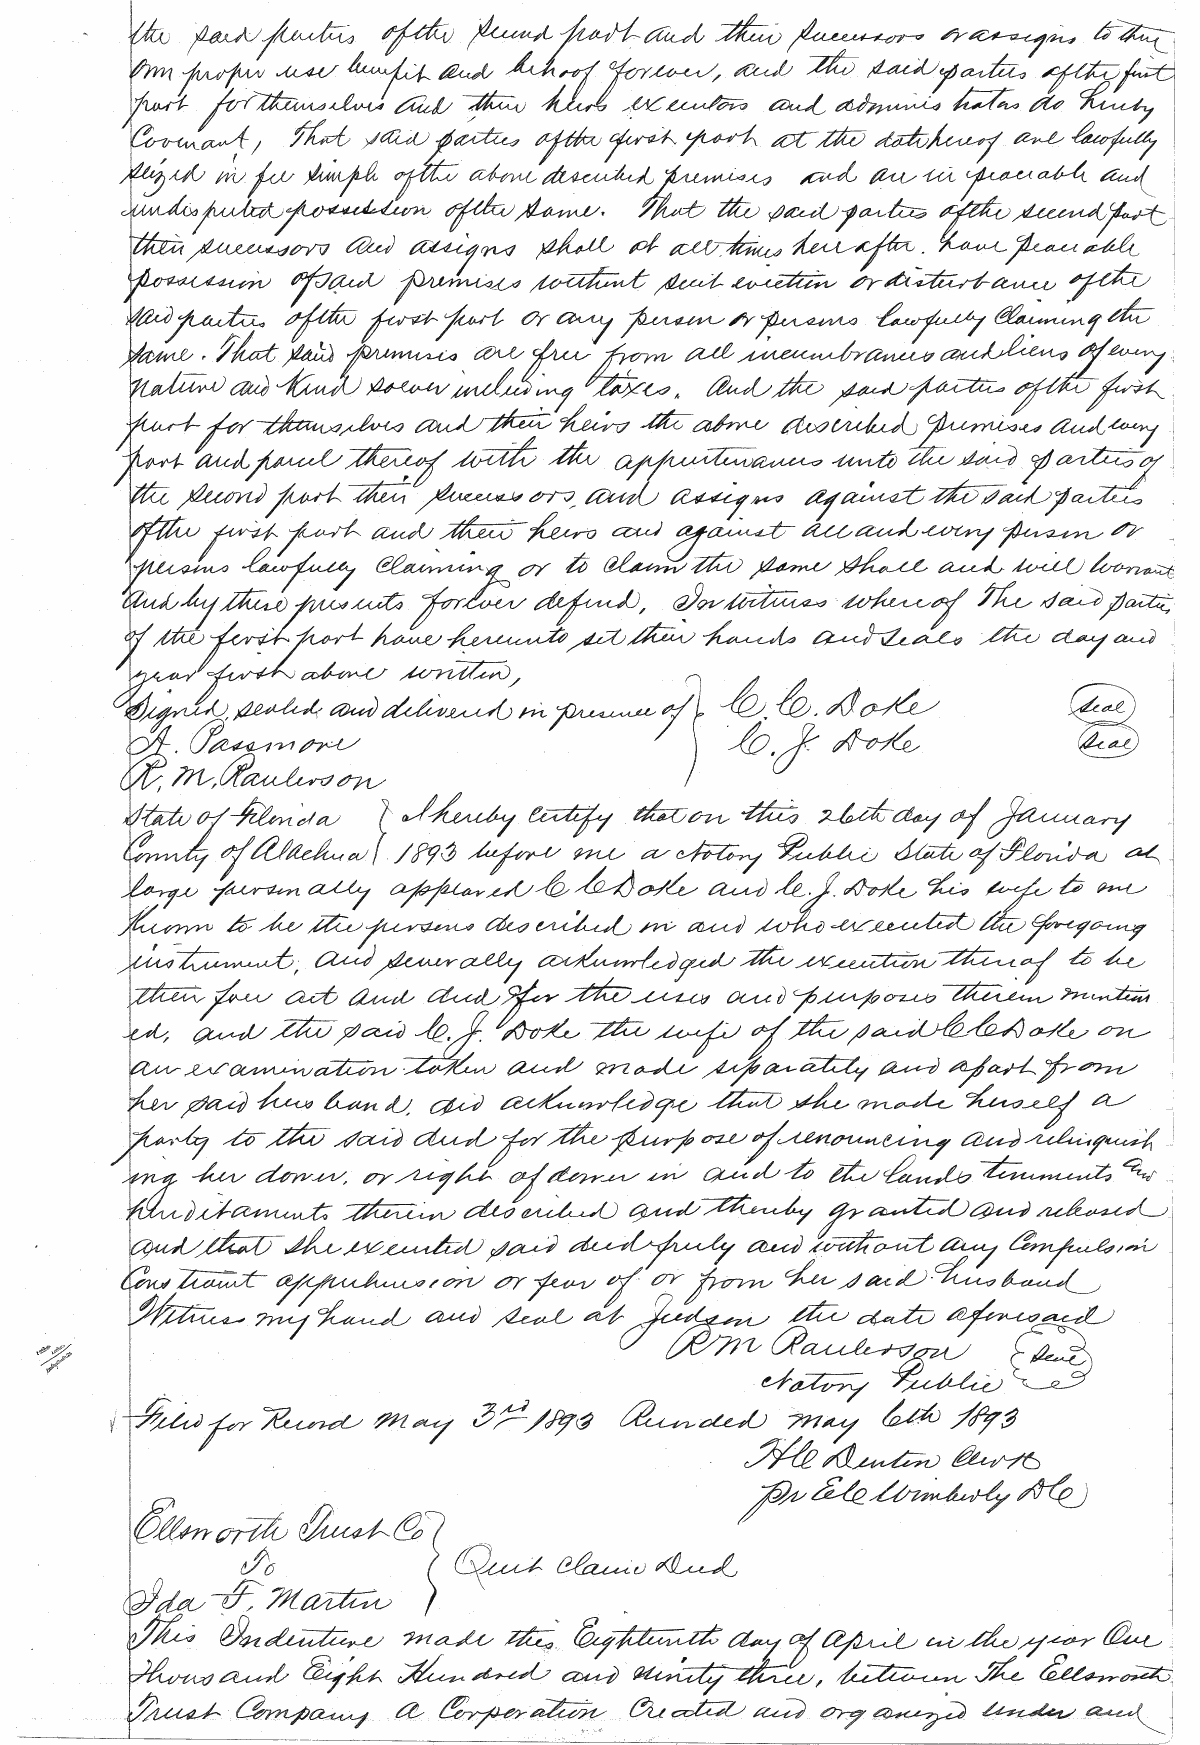 the said parties of the second part and their successors or assigns to their
own proper use benefit and behoof forever, and the said parties of the first
part for themselves and their heirs executors and administrators do hereby
Covenant, That said parties of the first part at the date hereof are lawfully
seized in fee simple of the above described premises and are in peaceable and
undisputed possession of the same. That the said parties of the second part
their successors and assigns shall at all times hereafter have peaceable
possession of said premises without suit eviction or disturbance of the
said parties of the first part or any person or persons lawfully Claiming the
same. That said premises are free from all incumbrances and liens of every
nature and Kind soever including taxes. And the said parties of the first
part for themselves and their heirs the above described premises and every
part and parcel thereof with the appurtenances unto the said parties of
the second part their successors, and assigns against the said parties
of the first part and their heirs and against all and every person or
persons lawfully Claiming or to claim the same shall and will warrant
and by these presents forever defend. In witness whereof The said parties
of the first part have hereunto set their hands and seals the day and
year first above written,
Signed, sealed and delivered in presence of } C. C. Doke (seal)
A. Passmore C. J. Doke (seal)
R. M. Raulerson
State of Florida } I hereby certify that on this 26th day of January
County of Alachua } 1893 before me a Notary Public State of Florida at
large personally appeared C C Doke and C. J. Doke his wife to me
known to be the persons described in and who executed the foregoing
instrument, and severally acknowledged the execution thereof to be
their free act and deed for the uses and purposes therein mention
ed, and the said C. J. Doke the wife of the said C C Doke on
an examination taken and made separately and apart from
her said husband, did acknowledge that she made herself a
party to the said deed for the purpose of renouncing and relinquish
ing her dower, or right of dower in and to the lands tenements and
hereditaments therein described and thereby granted and released
and that she executed said deed freely and without any Compulsion
Constraint apprehension or fear of or from her said husband
Witness my hand and seal at Judson the date aforesaid
R M Raulerson (seal)
Notary Public
Filed for Record May 3rd 1893 Recorded May 6th 1893
H C Denton Clerk
pr E C Wimberly D C
Ellsworth Trust Co }
To } Quit Claim Deed
Ida F. Martin
This Indenture made this Eighteenth day of April in the year One
thousand Eight Hundred and ninety three, between The Ellsworth
Trust Company A Corporation Created and organized under and